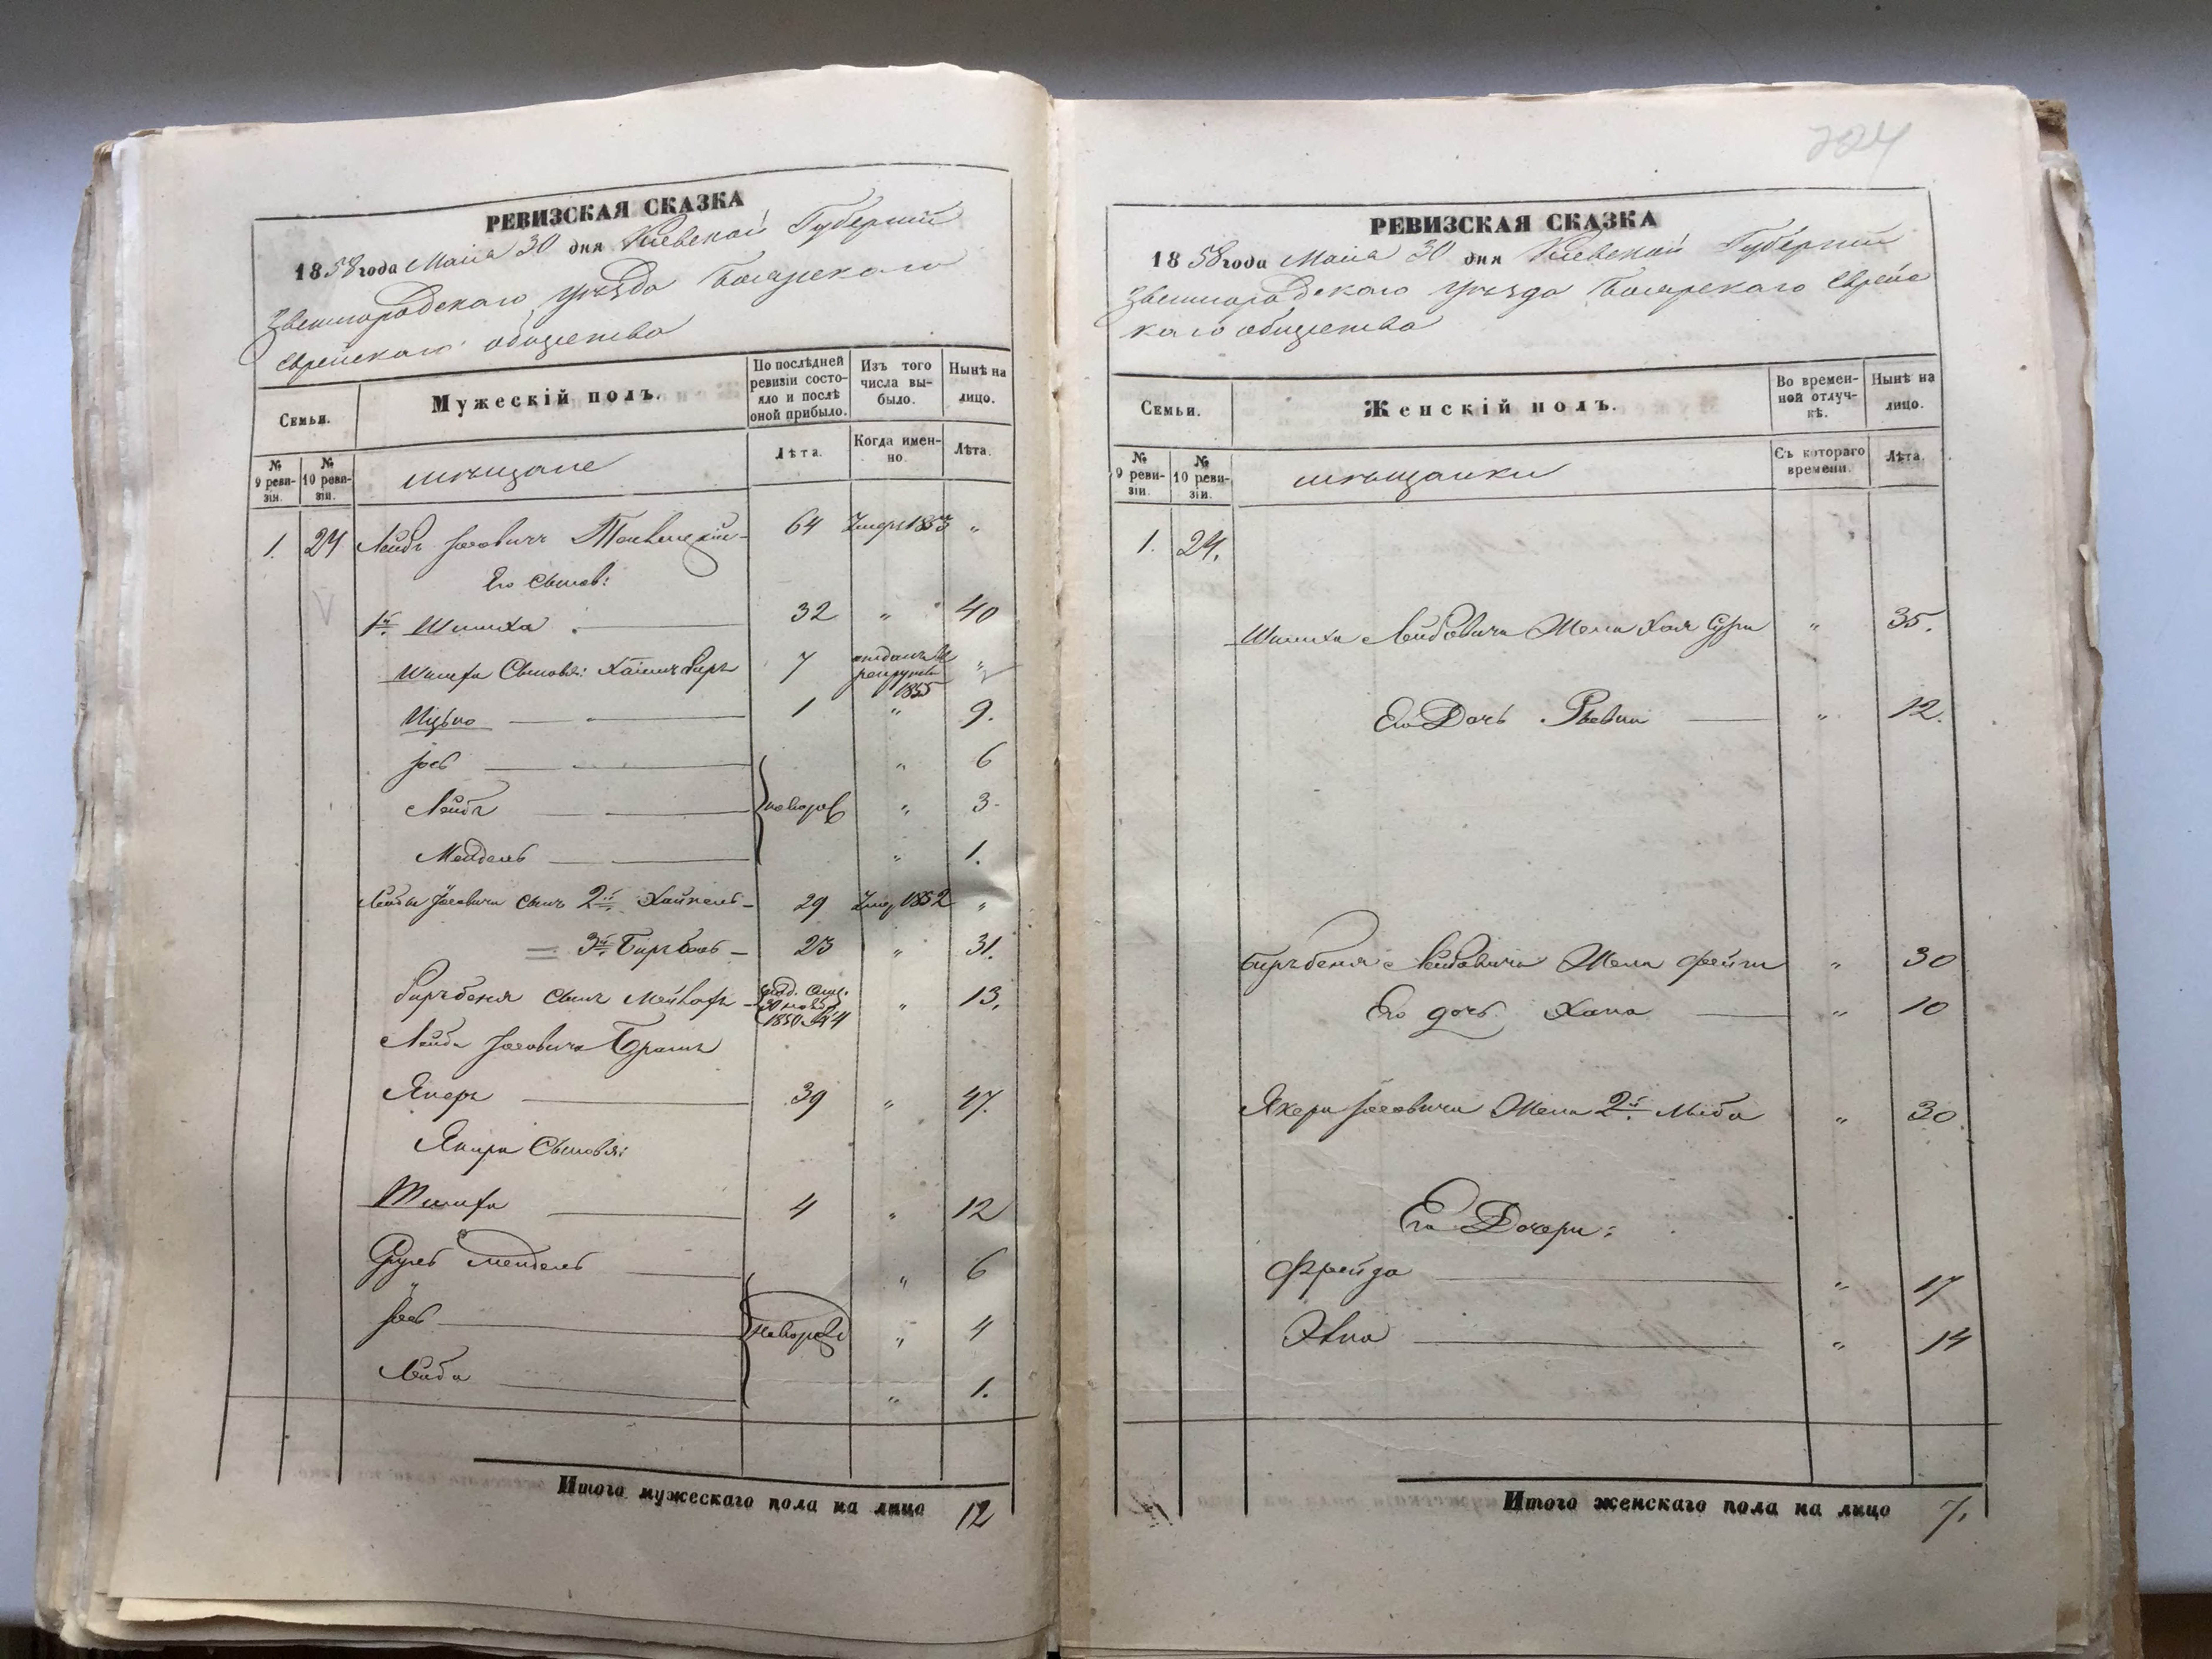 РЕВИЗСКАЯ СКАЗКА
1858 года Маія 30 дня Кіевской Губерніи
Звенигородскаго уѣзда Боярскаго
Еврейскаго общества
Семьи.
Мужескій полъ.
По послѣдней ревизіи состояло и послѣ оной прибыло.
Изъ того числа выбыло.
Нынѣ на лицо.
№ 9 ревизіи.
№ 10 ревизіи.
мѣщане
Лѣта.
Когда именно.
Лѣта.
1. 24 Лейба Іосевичъ 64 Умеръ 1853 "
Его Сынов:
1й Шимха 32 " 40
Шимха Сыновья: Хаимъ Беръ 7 отданъ въ рекруты 1855 "
Ицько 1 " 9.
Іось " 6
Лейба новорож " 3
Мендель " 1.
Лейбы Іосевича сынъ 2й Хайкель 29 Умер 1852 "
3й Берко 23 " 31.
сынъ 1850 № 4 " 13.
Лейбы Іосевича Братъ
Якеръ 39 " 47.
Якира Сыновья:
Шимха 4 " 12
Сруль Мендель " 6
Іось новорож " 4
Лейба " 1.
Итого мужескаго пола на лицо 12
724
РЕВИЗСКАЯ СКАЗКА
1858 года Маія 30 дня Кіевской Губерніи
Звенигородскаго уѣзда Боярскаго Еврейс
каго общества
Семьи.
Женскій полъ.
Во временной отлучкѣ.
Нынѣ на лицо.
№ 9 ревизіи.
№ 10 ревизіи.
мѣщанки
Съ котораго времени.
Лѣта.
1. 24.
Шимхи Лейбовича Жена Хая Сура " 35.
Его Дочь Ривка " 12.
Лейбовича Жена Фейга " 30
Его дочь Хана " 10
Якера Іосевича Жена 2я " 30.
Его Дочери:
Фрейда " 17
" 14
Итого женскаго пола на лицо 7.